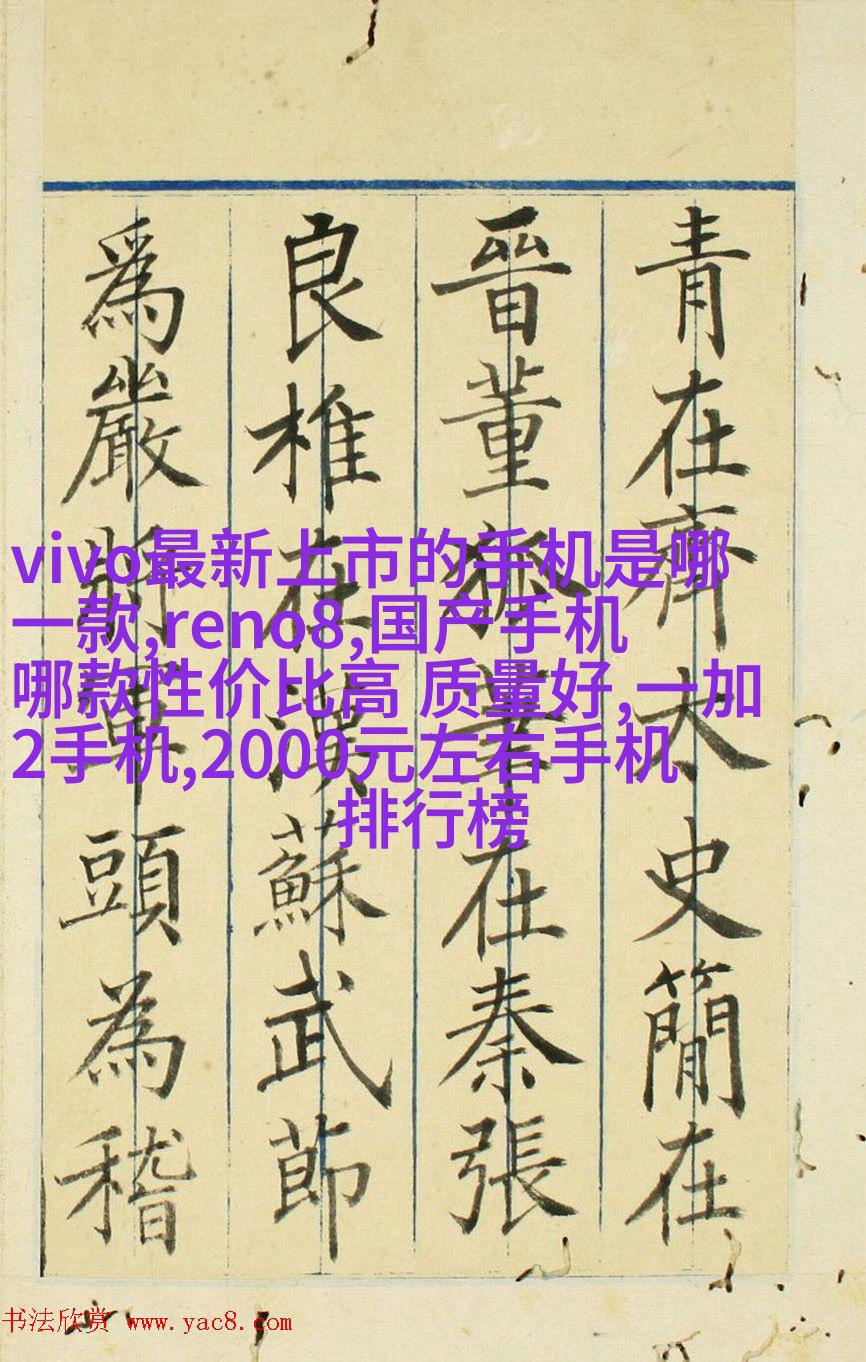 青在齊太史簡在
晉董狐筆在秦張
良椎在漢蘇武節
爲嚴將軍頭為稽
vivo最新上市的手机是哪
一款,reno8,国产手机
哪款性价比高 质量好,一加
2手机,2000元左右手机
排行榜
书法欣赏 www.yac8.com